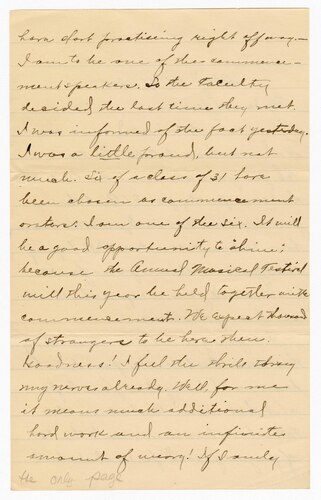 hard at practising right off way.—
I am to be one of the commence-
ment speakers. So the Faculty
decided the last time they met.
I was informed of the fact yesterday.
I was a little proud, but not
much. Six of a class of 31 have
been chosen as commencement
orators. I am one of the six. It will
be a good opportunity to "shine";
because the Annual Musical Festival
will this year be held together with
commencement. We expect thousand
of strangers to be here then.
Goodness! I feel the thrill
my nerves already. Well, for me
it means much additional
hard work and an infinite
amount of worry! If I only
the only page